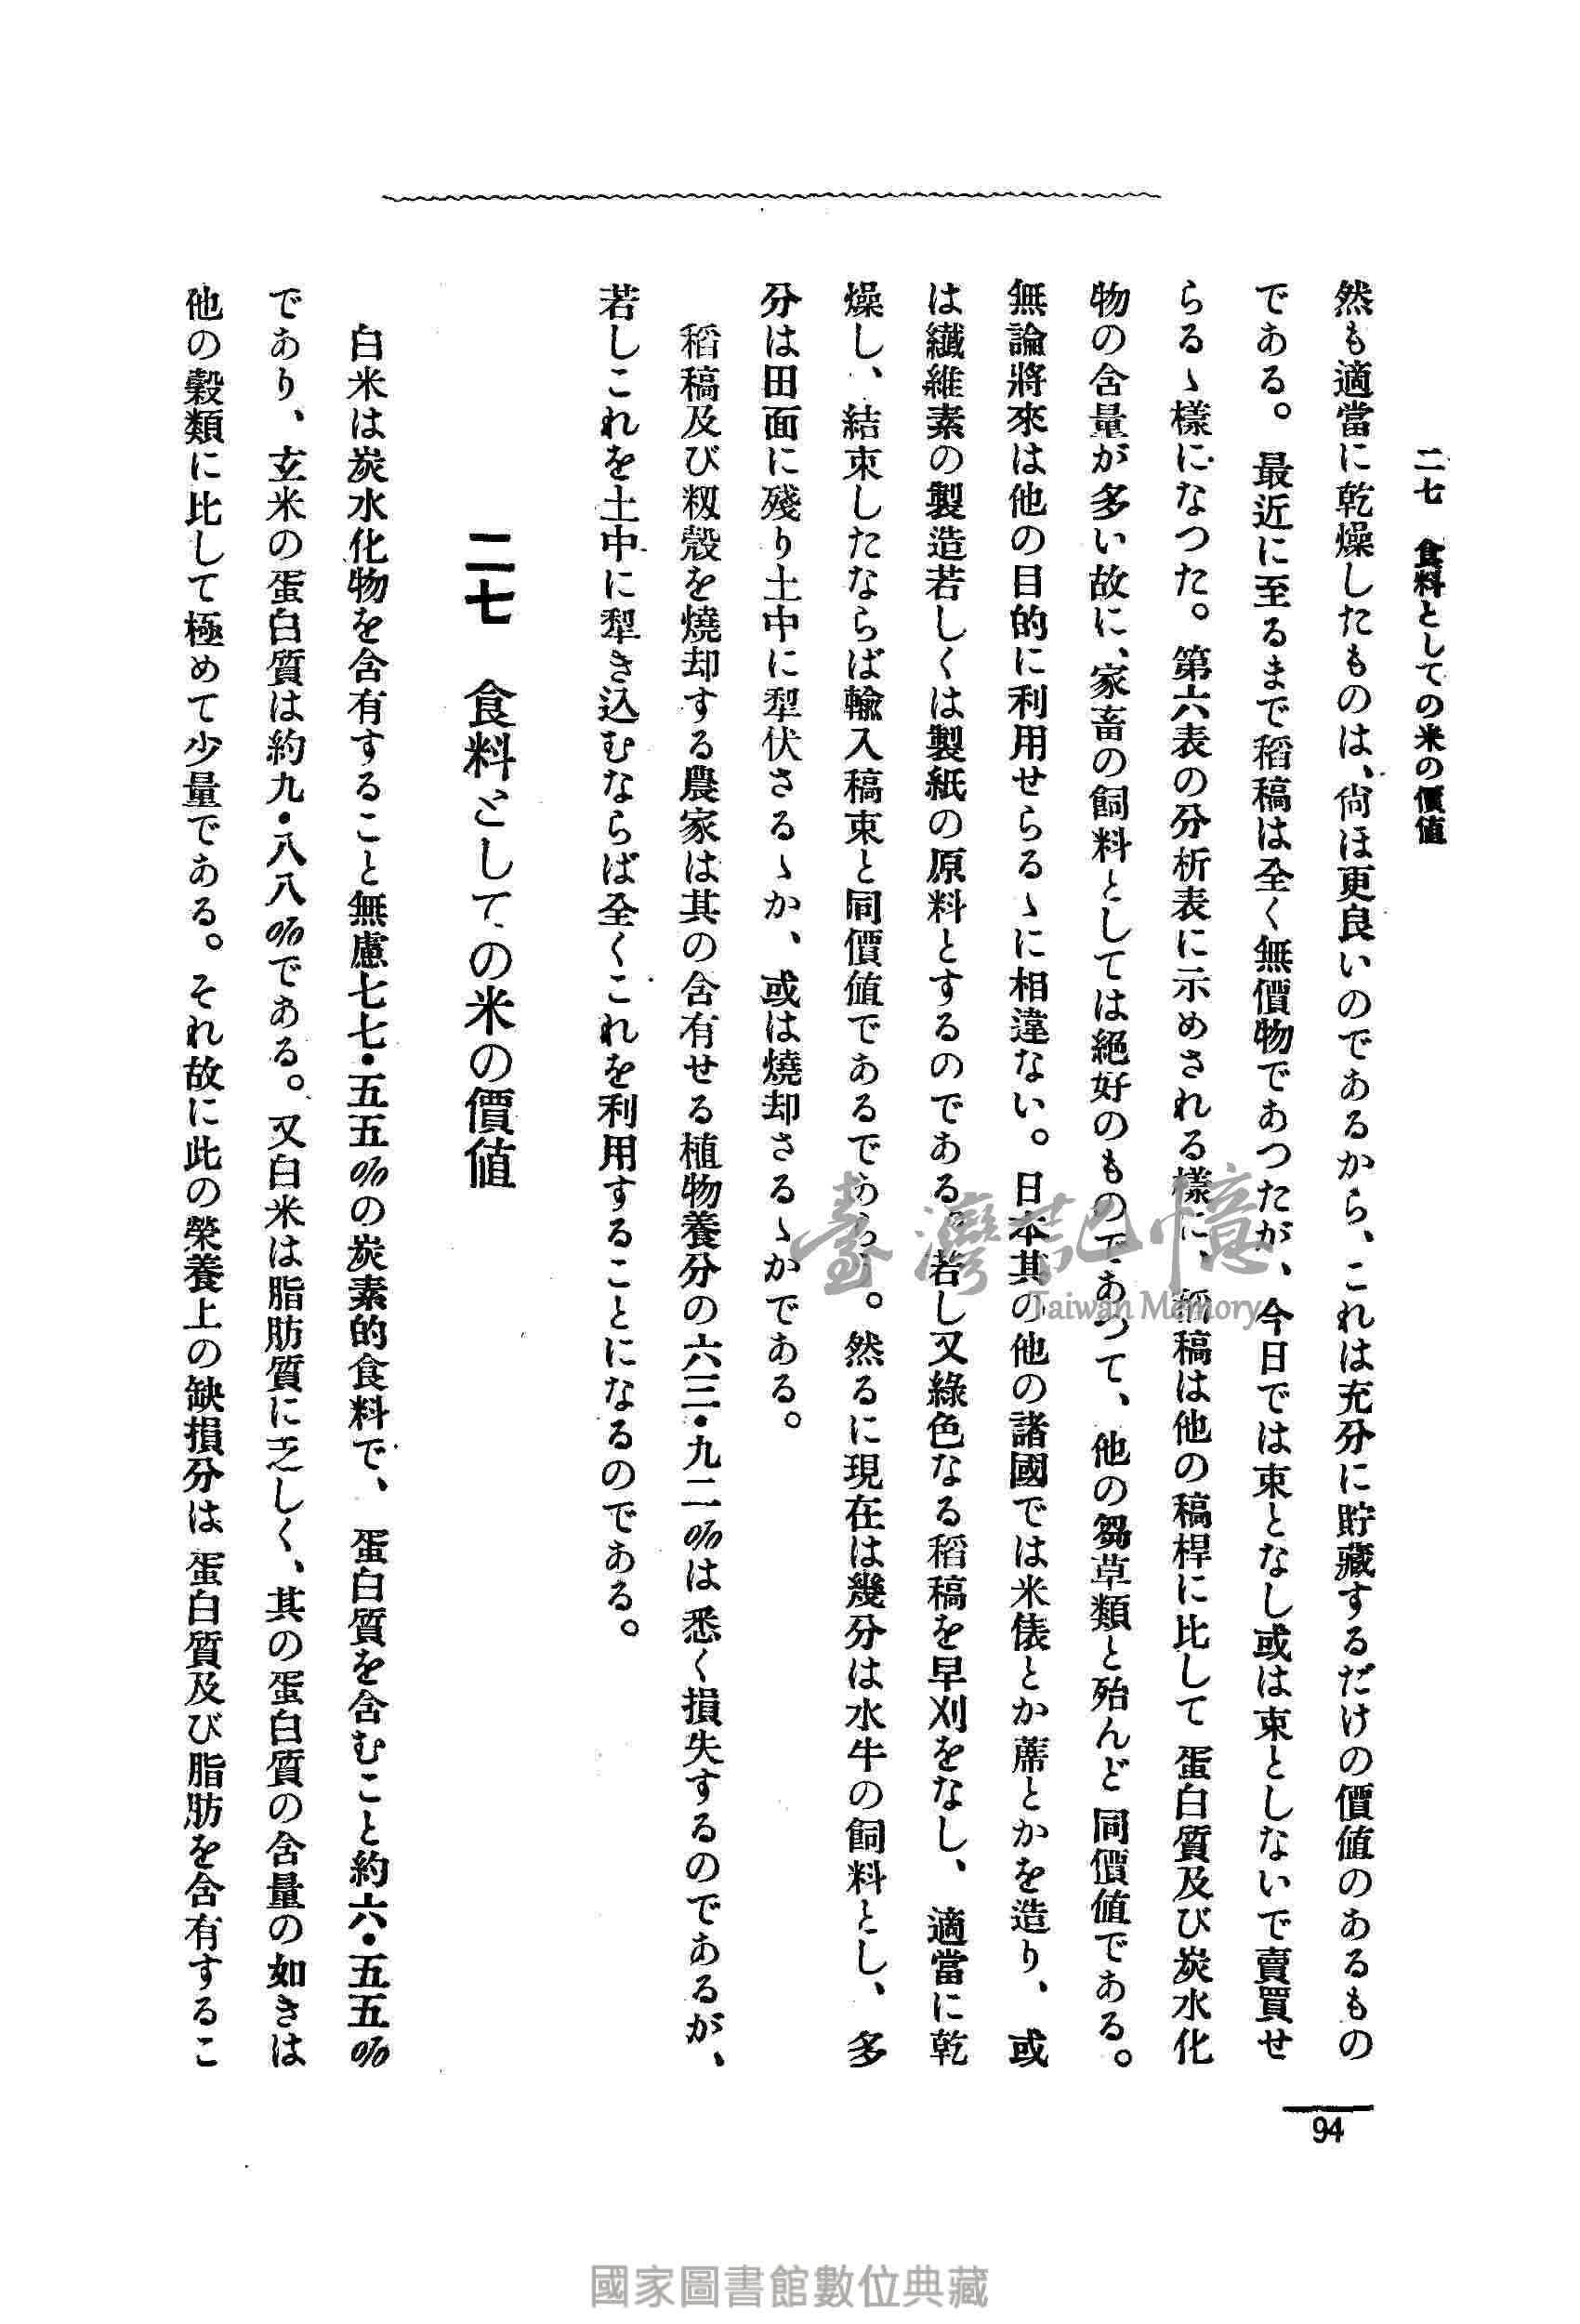 二七　食料としての米の價値
然も適當に乾燥したものは、尙ほ更良いのであるから、これは充分に貯藏するだけの價値のあるもの
である。最近に至るまで稻稿は全く無價物であつたが、今日では束となし或は束としないで賣買せ
らるゝ樣になつた。第六表の分析表に示めされる樣に、稻稿は他の稿桿に比して蛋白質及び炭水化
物の含量が多い故に、家畜の飼料としては絕好のものであつて、他の芻草類と殆んど同價値である。
無論將來は他の目的に利用せらるゝに相違ない。日本其の他の諸國では米俵とか蓆とかを造り、或
は纖維素の製造若しくは製紙の原料とするのである。若し又綠色なる稻稿を早刈をなし、適當に乾
燥し、結束したならば輸入稿束と同價値であるであらう。然るに現在は幾分は水牛の飼料とし、多
分は田面に殘り土中に犁伏さるゝか、或は燒却さるゝかである。
稻稿及び籾殼を燒却する農家は其の含有せる植物養分の六三・九二%は悉く損失するのであるが、
若しこれを土中に犁き込むならば全くこれを利用することになるのである。
二七　食料としての米の價値
白米は炭水化物を含有すること無慮七七・五五%の炭素的食料で、蛋白質を含むこと約六・五五%
であり、玄米の蛋白質は約九・八八%である。又白米は脂肪質に乏しく、其の蛋白質の含量の如きは
他の穀類に比して極めて少量である。それ故に此の榮養上の缺損分は蛋白質及び脂肪を含有するこ
94
臺灣記憶
Taiwan Memory
國家圖書館數位典藏